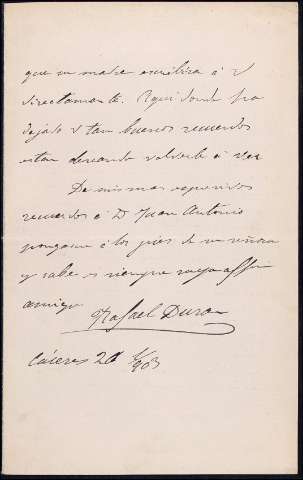 que su madre escribira á V
directamente. Aqui donde ha
dejado V tan buenos recuerdos
estan deseando volverle á ver
De mis mas expresivos
recuerdos á D Juan Antonio
pongame á los pies de su señora
y sabe es siempre suyo affmo
amigo
Rafael Duran
Cáceres 20